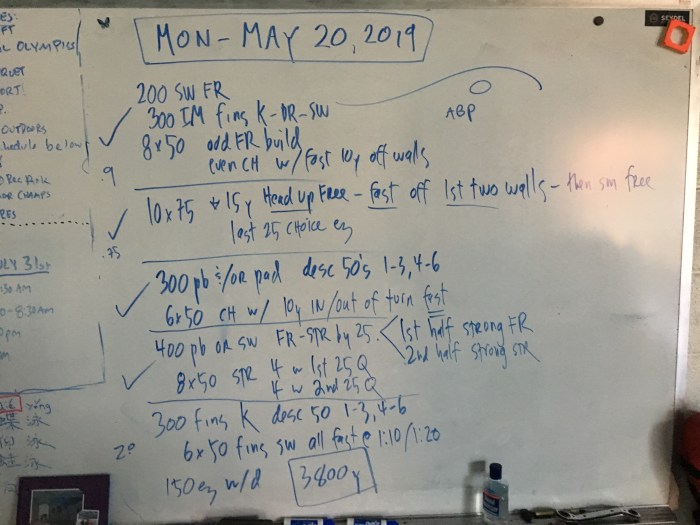 ES:
FT
L OLYMPICS
ORT!
P.
OUTDOORS
hedule below
CHAMPS
RES
LY 31st
:30 AM
0-8:30AM
0pm
MON-MAY 20, 2019
SEYDEL
200 SW FR
300 IM fins K-DR-SW
ABP
8x50 odd FR build
even CH w/ fast 10y off walls
.9
10x75 * 15y Head up Free - fast off 1st two walls - then sm free
last 25 CHOICE ez
.75
300 pb &/OR pad desc 50's 1-3, 4-6
6x50 CH w/ 10y IN/out of turn fast
400 pb OR SW FR-STR by 25 < 1st half strong FR
2nd half strong STR
8x50 STR 4 w 1st 25 Q
4 w 2nd 25 Q
300 fins K desc 50 1-3, 4-6
6x50 fins sw all fast @ 1:10/1:20
150 ez w/d 3800y
yǒng
蝶 泳
泳
泳